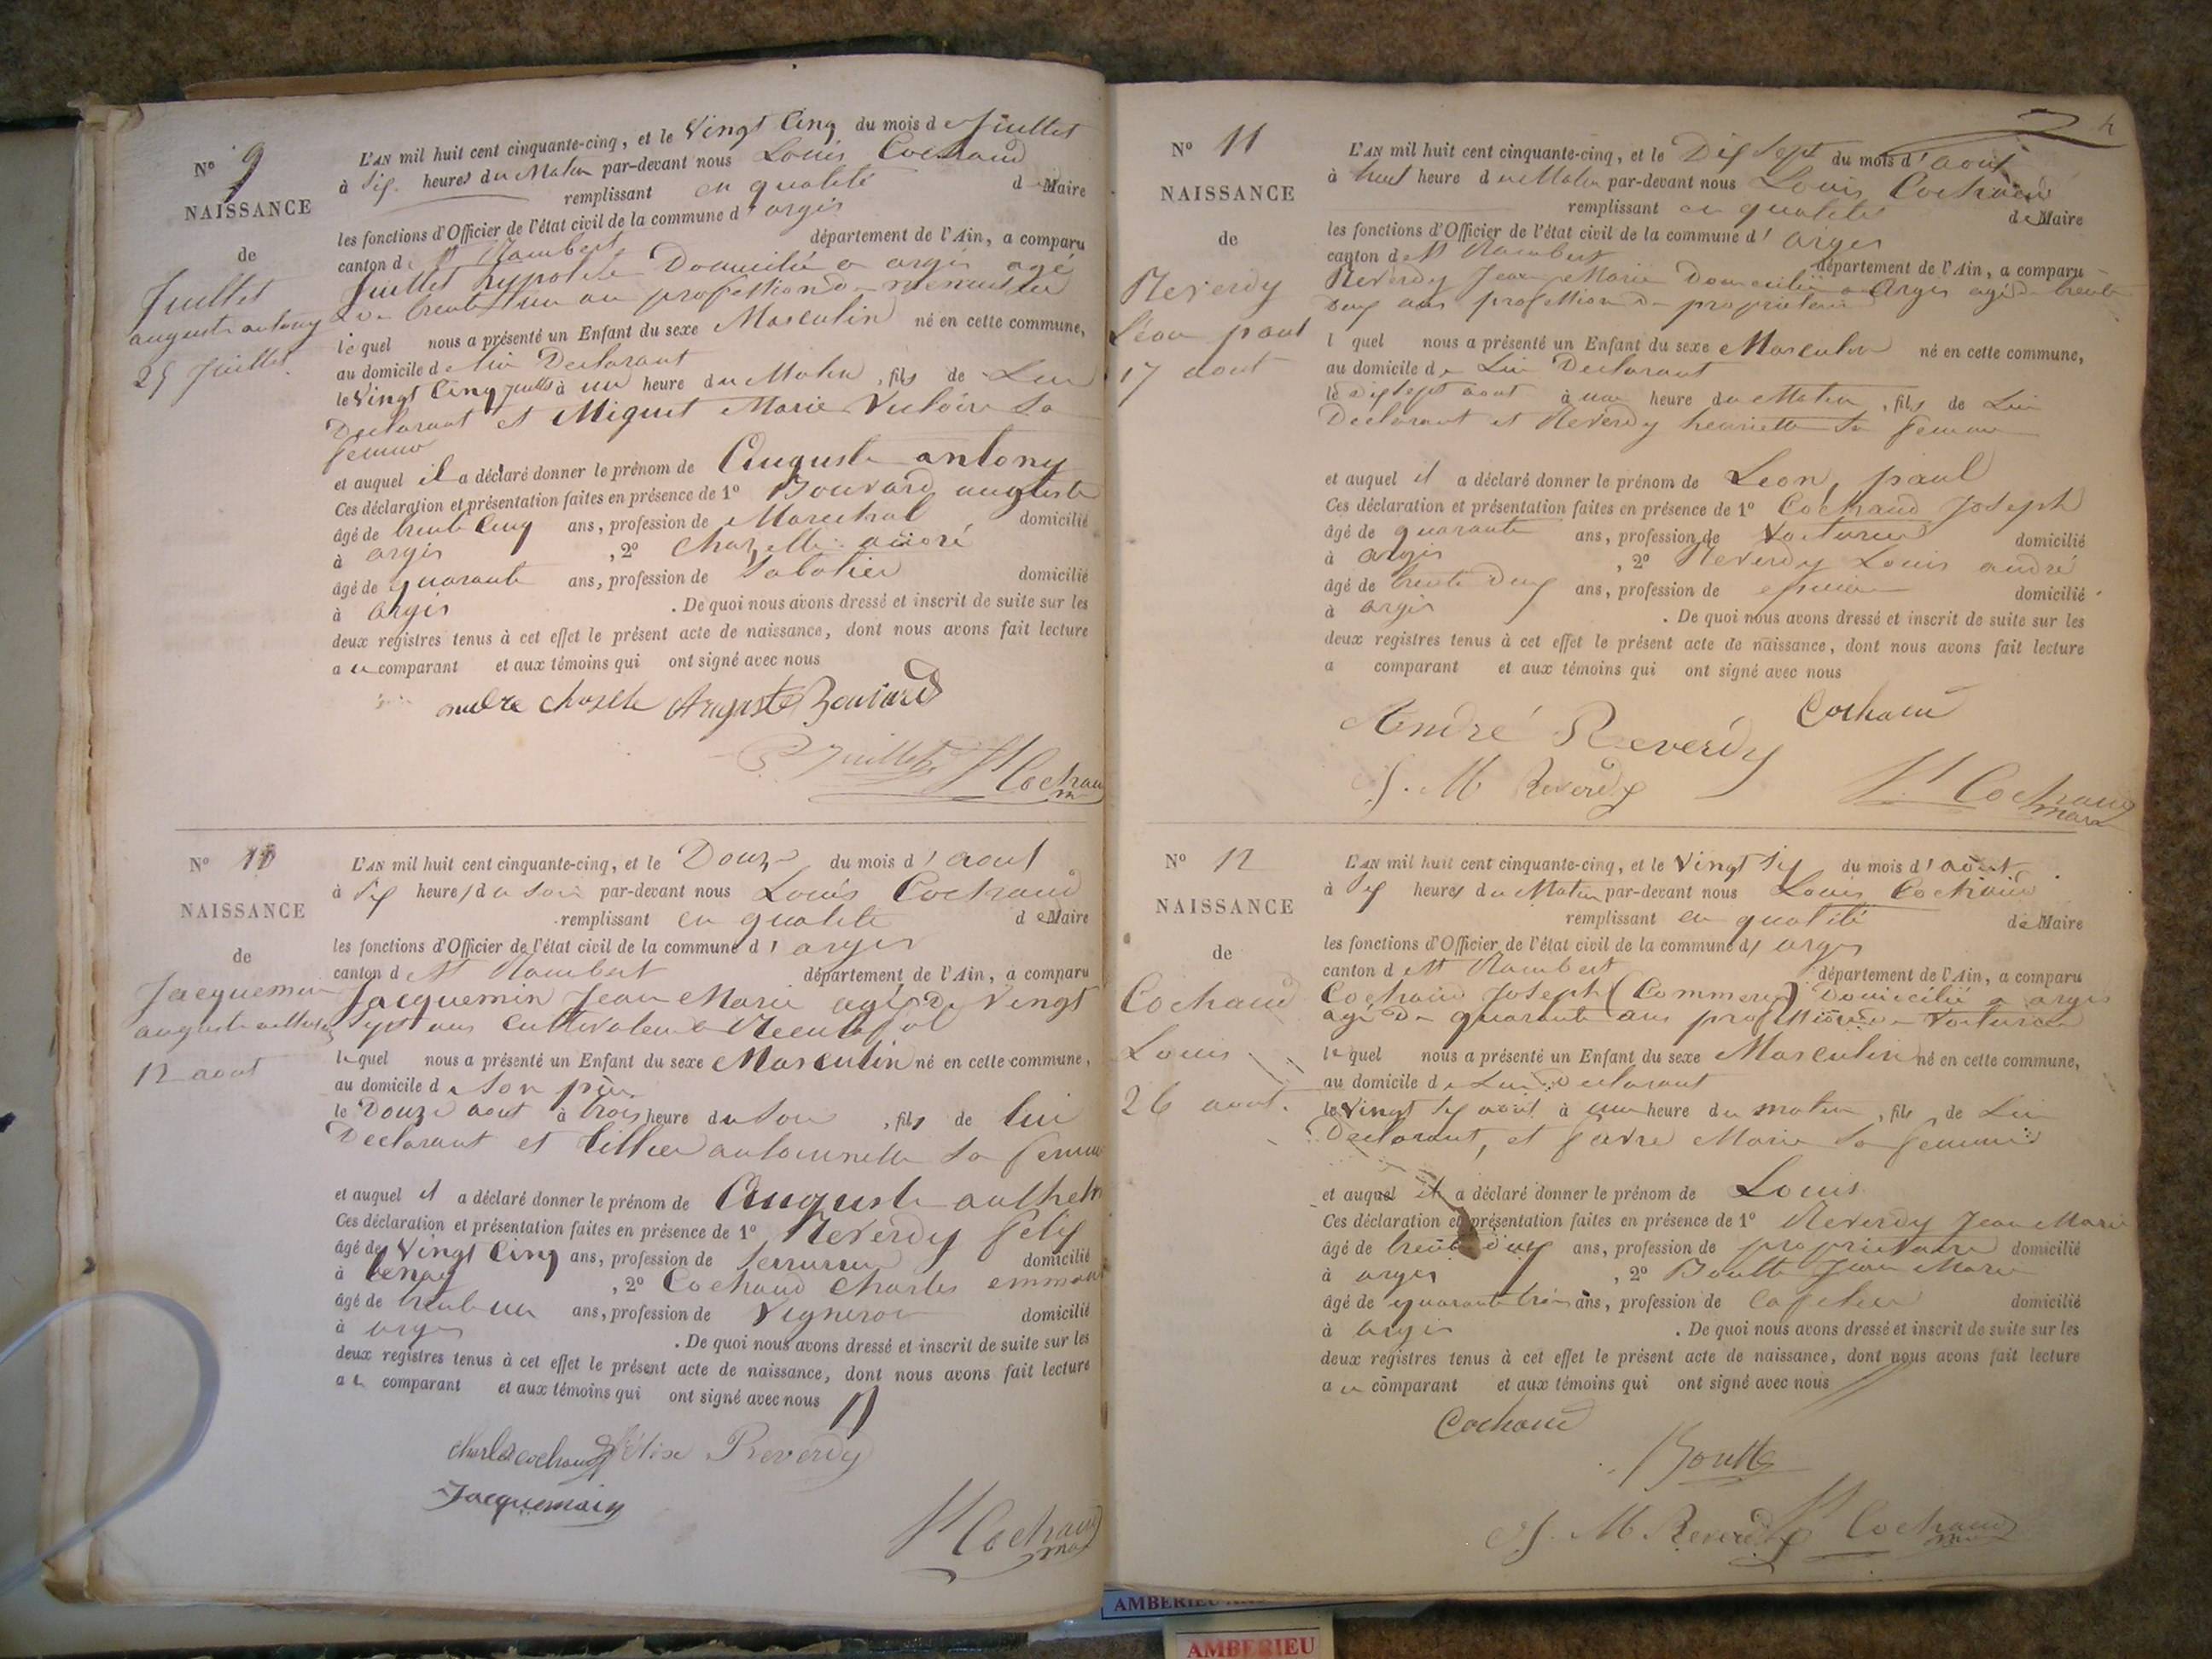 N° 9
NAISSANCE
de
Juillet
auguste antony
25 Juillet
L'AN mil huit cent cinquante-cinq, et le Vingt Cinq du mois de Juillet
à Six heures du Matin par-devant nous Louis Cochaud
remplissant en qualité de Maire
les fonctions d'Officier de l'état civil de la commune d'argis
canton de St Rambert département de l'Ain, a comparu
Juillet hypolite Domicilié a argis agé
de trente un an profession de menuisier
lequel nous a présenté un Enfant du sexe Masculin né en cette commune,
au domicile de lui Declarant
le Vingt Cinq Juillet à une heure du Matin, fils de Lui
Declarant et Miguet Marie Victoire Sa
femme
et auquel il a déclaré donner le prénom de Auguste antony
Ces déclaration et présentation faites en présence de 1° Bouvard auguste
âgé de trente Cinq ans, profession de Marechal domicilié
à argis, 2° Chazelle andré
âgé de quarante ans, profession de Sabotier domicilié
à argis. De quoi nous avons dressé et inscrit de suite sur les
deux registres tenus à cet effet le présent acte de naissance, dont nous avons fait lecture
au comparant et aux témoins qui ont signé avec nous
andre chazelle Auguste Bouvard
Juillet Lt Cochaud
N° 10
NAISSANCE
de
Jacquemin
auguste anthelme
12 aout
L'AN mil huit cent cinquante-cinq, et le Douze du mois d'aout
à Six heures du Soir par-devant nous Louis Cochaud
remplissant en qualité de Maire
les fonctions d'Officier de l'état civil de la commune d'argis
canton de St Rambert département de l'Ain, a comparu
Jacquemin Jean Marie agé de Vingt
Sept ans Cultivateur a
lequel nous a présenté un Enfant du sexe Masculin né en cette commune,
au domicile de Son père
le Douze aout à trois heure du Soir, fils de lui
Declarant et antoinette Sa femme
et auquel il a déclaré donner le prénom de Auguste anthelm
Ces déclaration et présentation faites en présence de 1° Reverdy felix
âgé de Vingt Cinq ans, profession de Serrurier domicilié
à tenay, 2° Cochaud Charles
âgé de trente un ans, profession de Vigneron domicilié
à argis. De quoi nous avons dressé et inscrit de suite sur les
deux registres tenus à cet effet le présent acte de naissance, dont nous avons fait lecture
au comparant et aux témoins qui ont signé avec nous
Charles cochaud félix Reverdy
Jacquemain
Lt Cochaud
N° 11
NAISSANCE
de
Reverdy
Léon paul
17 aout
L'AN mil huit cent cinquante-cinq, et le Dix Sept du mois d'aout
à huit heure du Matin par-devant nous Louis Cochaud
remplissant en qualité de Maire
les fonctions d'Officier de l'état civil de la commune d'argis
canton de St Rambert département de l'Ain, a comparu
Reverdy Jean Marie Domicilié a Argis agé de trente
deux ans profession de proprietaire
l quel nous a présenté un Enfant du sexe Masculin né en cette commune,
au domicile de Lui Declarant
le dix Sept aout à une heure du Matin, fils de Lui
Declarant et Reverdy henriette Sa femme
et auquel il a déclaré donner le prénom de Leon, paul
Ces déclaration et présentation faites en présence de 1° Cochaud Joseph
âgé de quarante ans, profession de Voiturier domicilié
à argis, 2° Reverdy Louis andré
âgé de trente deux ans, profession de epicier domicilié
à argis. De quoi nous avons dressé et inscrit de suite sur les
deux registres tenus à cet effet le présent acte de naissance, dont nous avons fait lecture
a comparant et aux témoins qui ont signé avec nous
Cochaud
André Reverdy
J. M Reverdy Lt Cochaud
maire
N° 12
NAISSANCE
de
Cochaud
Louis
26 aout.
L'AN mil huit cent cinquante-cinq, et le Vingt Six du mois d'août
à Six heures du Matin par-devant nous Louis Cochaud
remplissant en qualité de Maire
les fonctions d'Officier de l'état civil de la commune d'argis
canton de St Rambert département de l'Ain, a comparu
Cochaud Joseph (Commere) Domicilié a argis
agé de quarante ans profession de Voiturier
lequel nous a présenté un Enfant du sexe Masculin né en cette commune,
au domicile de Lui Declarant
le Vingt Six aout à une heure du matin, fils de Lui
Declarant, et favre Marie Sa femme
et auquel il a déclaré donner le prénom de Louis
Ces déclaration et présentation faites en présence de 1° Reverdy Jean Marie
âgé de trente deux ans, profession de proprietaire domicilié
à argis, 2° Boutte Jean Marie
âgé de quarante trois ans, profession de cafetier domicilié
à argis. De quoi nous avons dressé et inscrit de suite sur les
deux registres tenus à cet effet le présent acte de naissance, dont nous avons fait lecture
au comparant et aux témoins qui ont signé avec nous
Cochaud
Boutte
J. M Reverdy Lt Cochaud
AMBERIEU
AMBERIEU